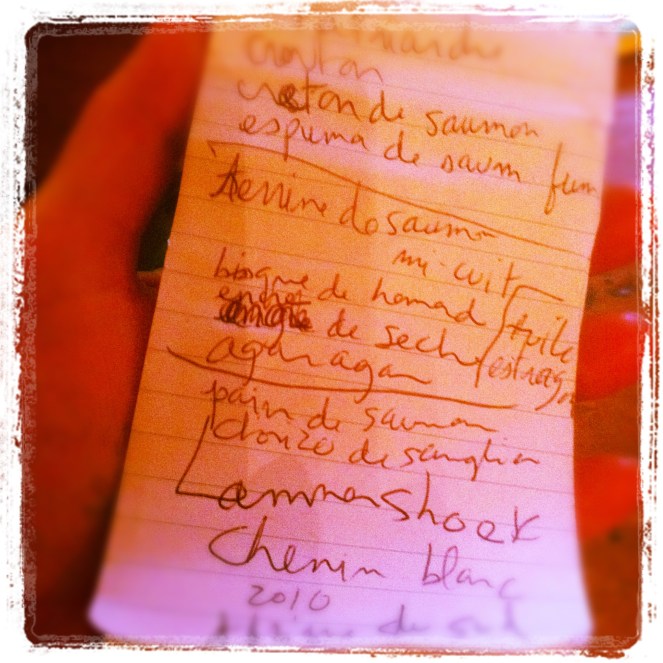 creton de saumon
espuma de saum. fum
terrine de saumon
mi-cuit
bisque de homard
encre de seche
agar agar
estrago
pain de saumon
chorizo de sanglier
Lammershoek
Chenin blanc
2010